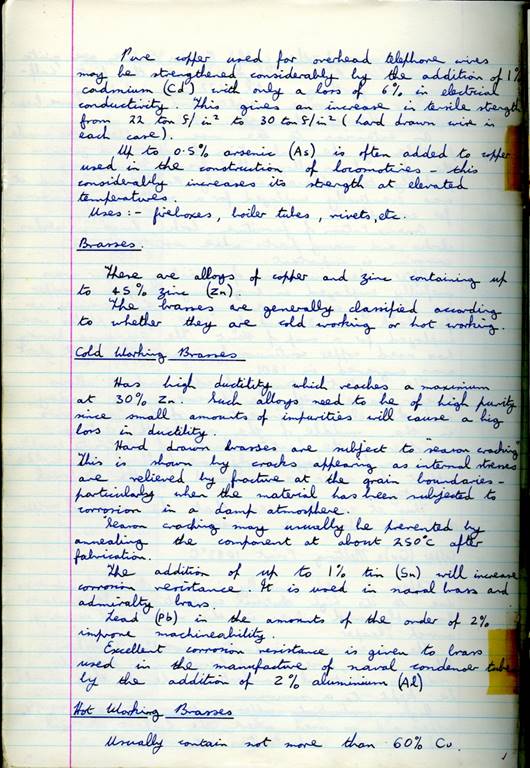 Pure copper used for overhead telephone wires
may be strengthened considerably by the addition of 1%
cadmium (Cd) with only a loss of 6% in electrical
conductivity. This gives an increase in tensile strength
from 22 tonf/in² to 30 tonf/in² (hard drawn wire in
each case).
Up to 0.5% arsenic (As) is often added to copper
used in the construction of locomotives - this
considerably increases its strength at elevated
temperatures.
Uses :- fireboxes, boiler tubes, rivets, etc.
Brasses.
These are alloys of copper and zinc containing up
to 45% zinc (Zn).
The brasses are generally classified according
to whether they are cold working or hot working.
Cold Working Brasses
Has high ductility which reaches a maximum
at 30% Zn. Such alloys need to be of high purity
since small amounts of impurities will cause a big
loss in ductility.
Hard drawn brasses are subject to "season cracking"
This is shown by cracks appearing as internal stresses
are relieved by fracture at the grain boundaries -
particularly when the material has been subjected to
corrosion in a damp atmosphere.
"Season cracking" may usually be prevented by
annealing the component at about 250°C after
fabrication.
The addition of up to 1% tin (Sn) will increase
corrosion resistance. It is used in naval brass and
admiralty brass.
Lead (Pb) in the amounts of the order of 2%
improve machineability.
Excellent corrosion resistance is given to brass
used in the manufacture of naval condenser tubes
by the addition of 2% aluminium (Al)
Hot Working Brasses
Usually contain not more than 60% Cu.